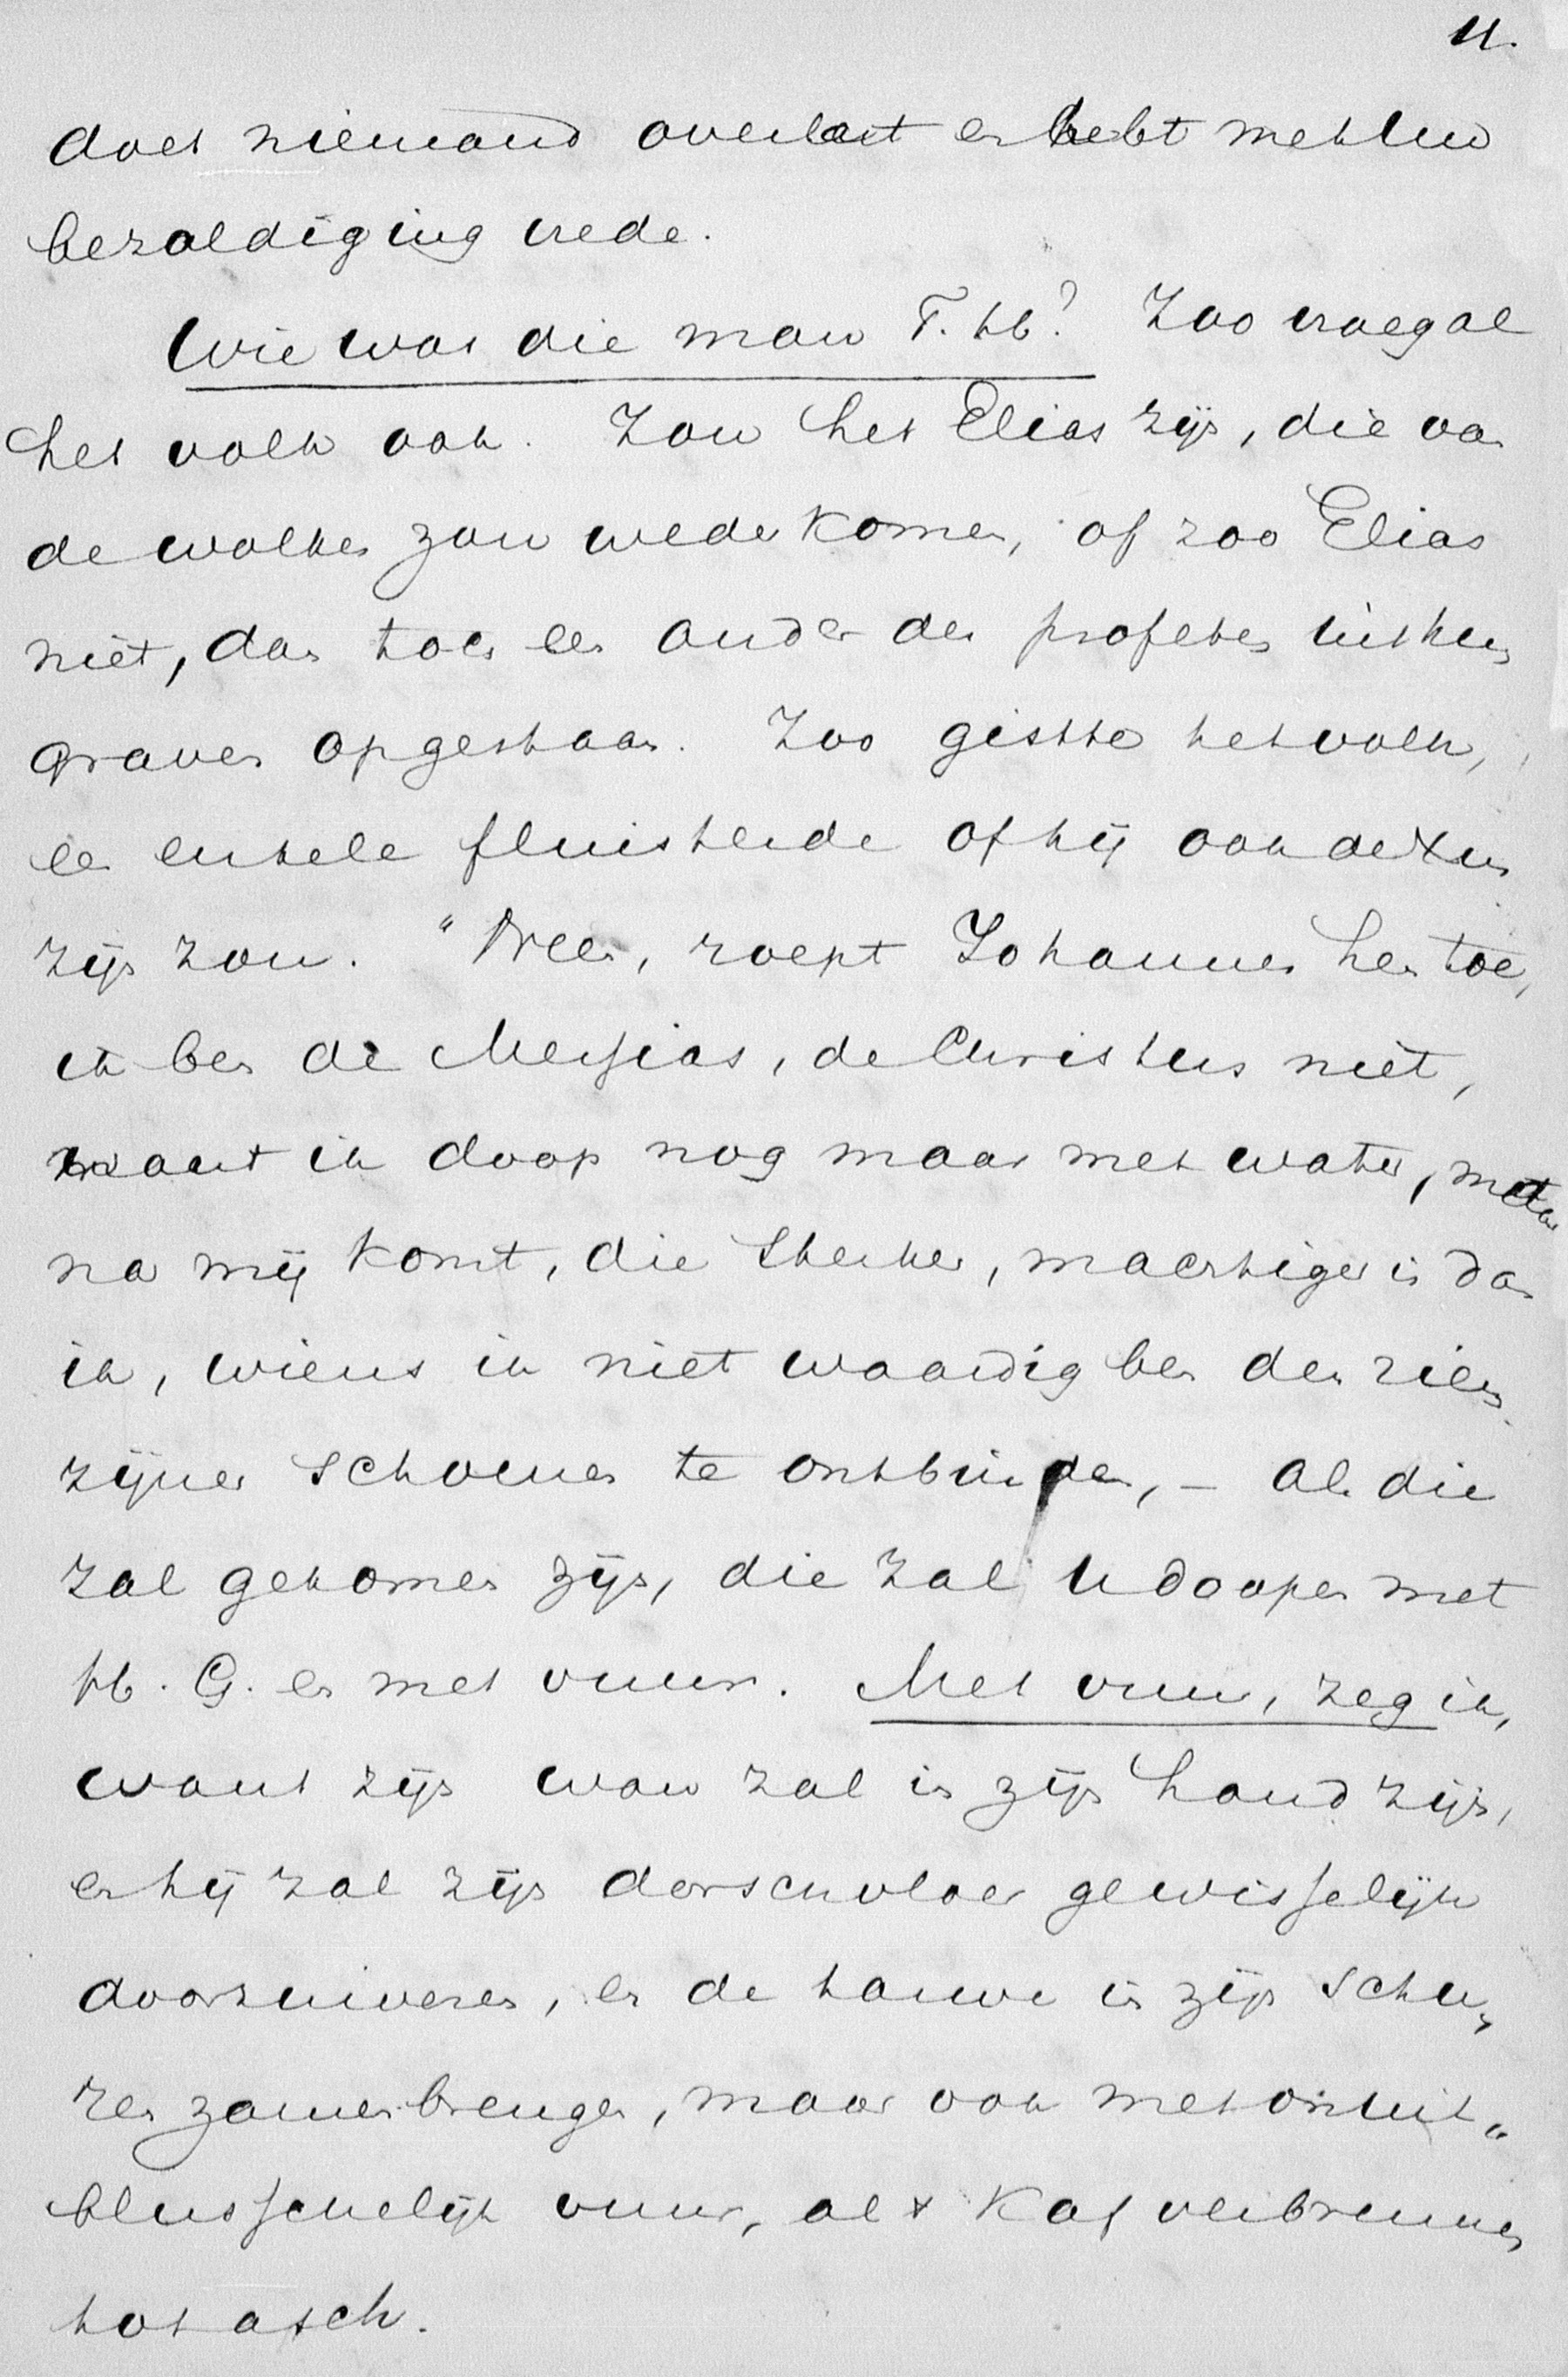 11.
doet niemand overlast en hebt met Uw
bezoldiging vrede.
Wie was die man T. H.? Zoo vraegal
het volk ook. Zou het Elias zijn, die van
de wolken zou wederkomen, of zoo Elias
niet, dan toch een ander der profeten uit hun
graven opgestaan. Zoo giste het volk,
een enkele fluisterde of hij ook de Xus
zijn zou. "Neen, roept Johannes hen toe,
ik ben de Messias, de Christus niet,
want ik doop nog maar met water, maar
na mij komt, die sterker, machtiger is dan
ik, wiens ik niet waardig ben den riem
zijner schoenen te ontbinden, – als die
zal gekomen zijn, die zal U doopen met
H. G. en met vuur. Met vuur, zeg ik,
want zijn wan zal in zijn hand zijn,
en hij zal zijn dorschvloer gewisselijk
doorzuiveren, en de tarwe in zijn schu„
ren zamenbrengen, maar ook met onuit„
blusschelijk vuur, al 't kaf verbrennen
tot asch.